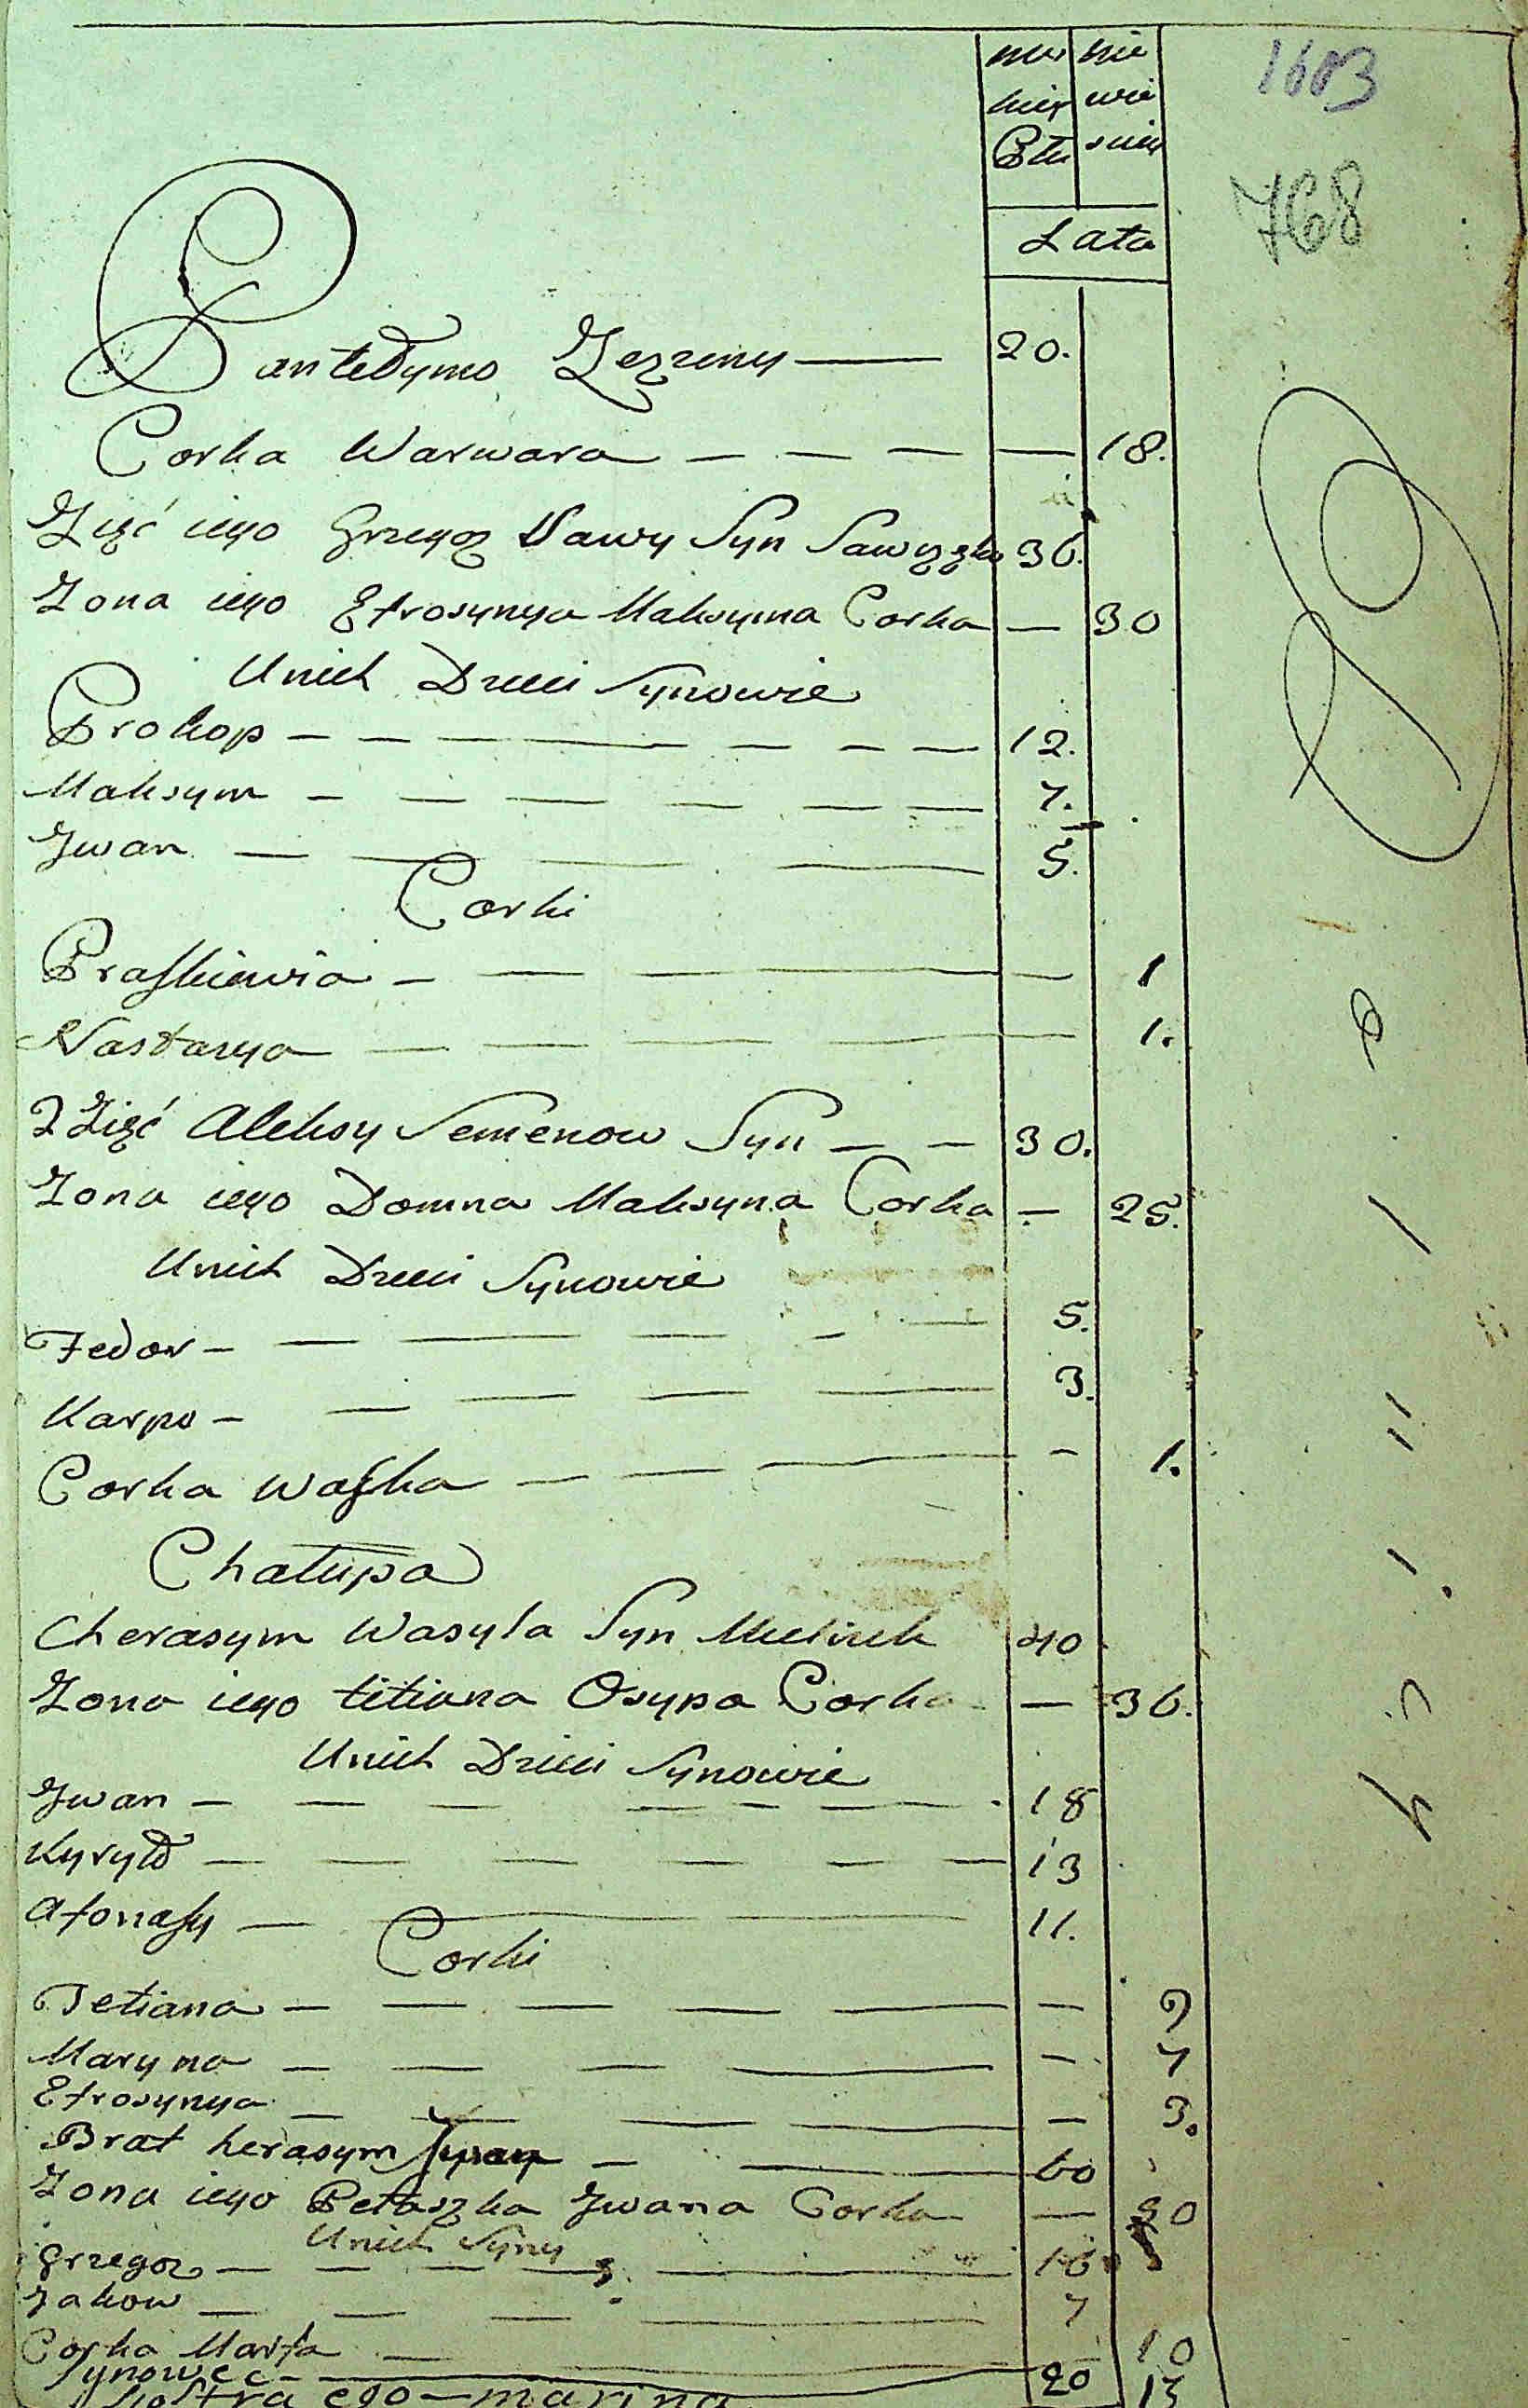 1603
768
Lata
Pantełymo 20.
Corka Warwara — 18.
Zięć iego Grzegoz Sawy Syn 36.
Zona iego Efrosynya Maksyma Corka — 30
Unich Dzieci Synowie
Prokop 12.
Maksym 7.
Jwan 5.
Corki
Praskiewia — 1
Nastasya — 1.
2 Zięć Aleksy Semenow Syn 30.
Zona iego Domna Maksyma Corka — 25.
Unich Dzieci Synowie
Fedor 5.
Karpo 3.
Corka Waska — 1.
Chałupa
Cherasym Wasyla Syn 40
Zona iego titiana Osypa Corka — 36.
Unich Dzieci Synowie
Jwan 18
Kyryło 13
Afonasy 11.
Corki
Tetiana — 9
Maryna — 7
Efrosynya — 3.
Brat herasym 60
Zona iego Jwana Corka —
Unich Syny
Grzegoz 16
Jakow 7
Corka Marfa — 10
Synowec 20
Siostra ego — marina 13